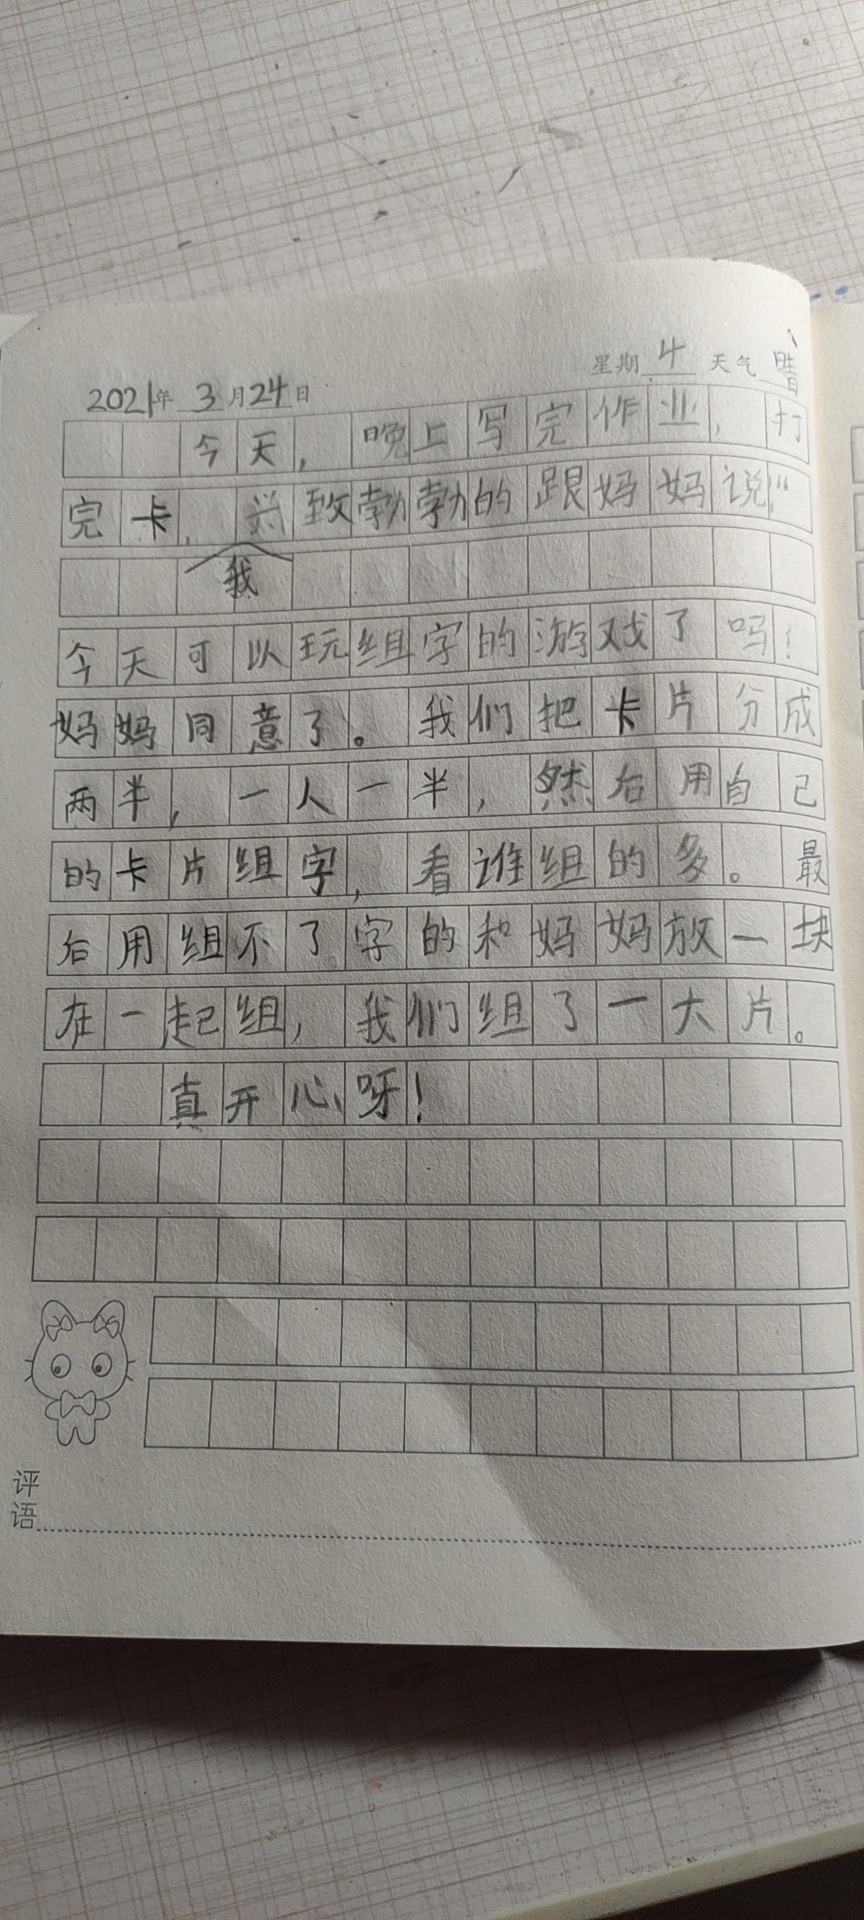 2021年 3月24日 星期 4 天气 晴
今天，晚上写完作业，打
完卡，兴致勃勃的跟妈妈说，“
我
今天可以玩组字的游戏了吗！
妈妈同意了。我们把卡片分成
两半，一人一半，然后用自己
的卡片组字，看谁组的多。最
后用组不了字的和妈妈放一块
在一起组，我们组了一大片。
真开心呀！
评
语